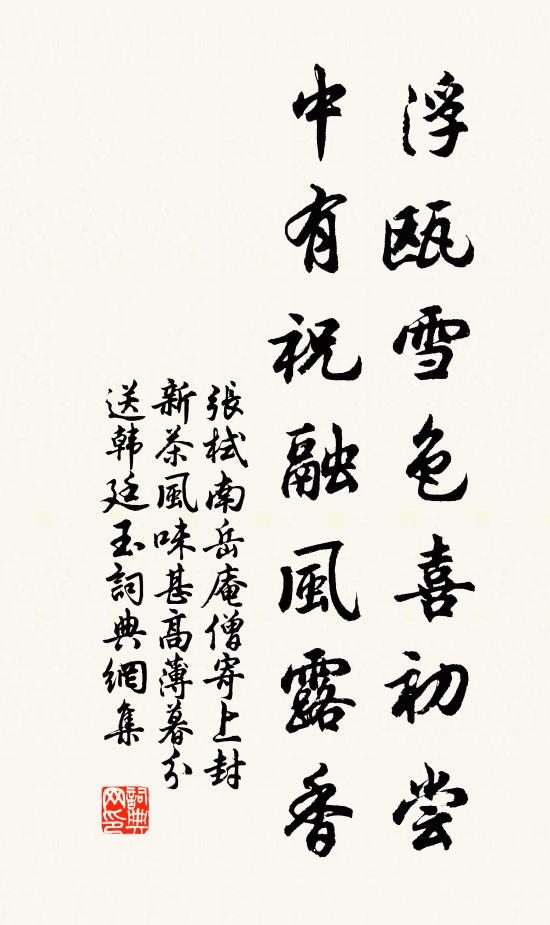 浮瓯雪色喜初尝
中有祝融風露香
張栻南岳庵僧寄上封
新茶風味甚高薄暮分
送韩廷玉詞典網集
詞典网印